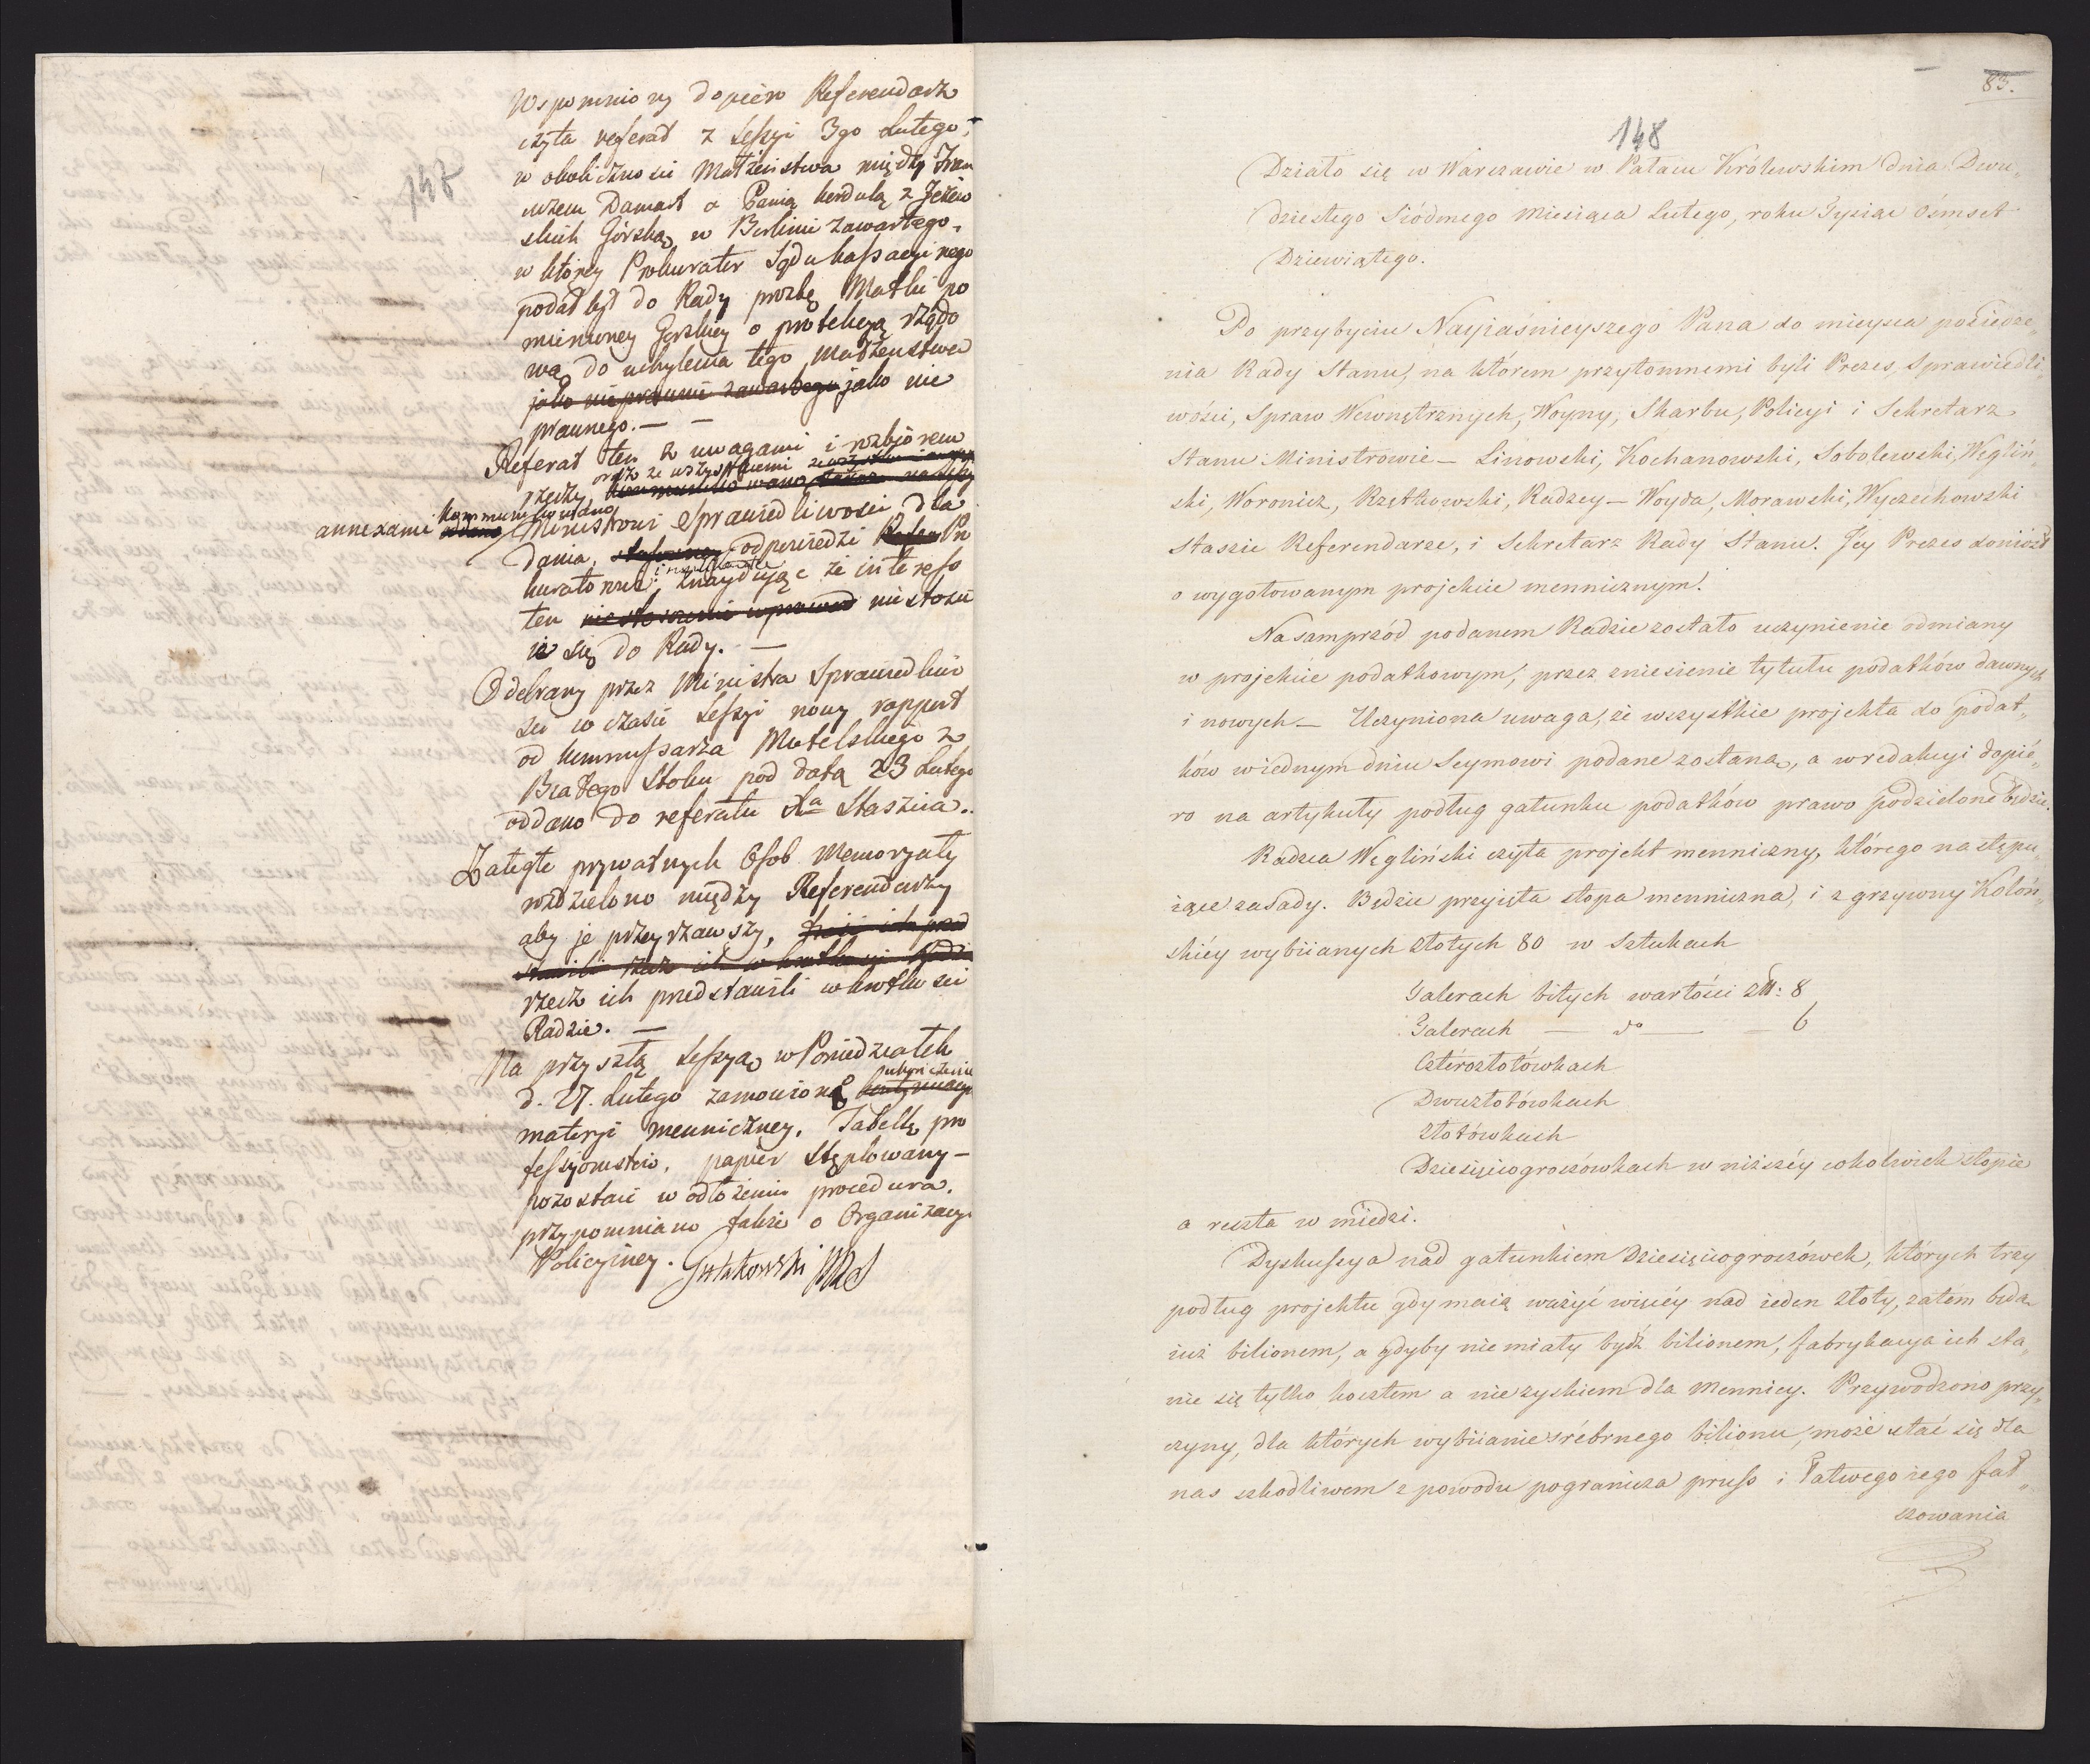 148
Wspomniony dopiero Referendarz
czyta referat z Sessyi 3go Lutego,
w okoliczności Małżeństwa między Fran
cuzem Damart a Panią Kordulą z Jeżew
skich Górską w Berlinie zawartego,
w którey Prokurator Sądu kassacyinego
podał był do Rady prozbę Matki po
mienioney Gorskiey o protekcyą rządo
wą do uchylenia tego Małżenstwa
jako nieprawnie zawartego jako nie
prawnego. —
Referat ten z uwagami i rozbiorem
oraz ze wszystkiemi
rzeczy, kommunikowano
annexami kommunikowano Ministrowi Sprawiedliwości dla
dania, odpowiedzi Pro
kuratorowi; znayduiąc że interess
ten nie stosu
ie się do Rady. —
Odebrany przez Ministra Sprawiedliwo
ści w czasie Sessyi nowy rapport
od kommissarza Mutelskiego z
Białego Stoku pod datą 23 Lutego
oddano do referatu Xa Staszica.
Zaległe prywatnych Osob Memoryały
rozdzielono między Referendarzy
aby je przeyrzawszy,
rzecz ich przedstawili w krotkości
Radzie. —
Na przyszłą Sessyą w Poniedziałek
ukończenie
d. 27. Lutego zamowioną
materyi menniczney, Tabellę pro
fessyonistów, papier stęplowany —
pozostaie w odłożeniu procedura.
przypomniano także o Organizacyi
Policyiney. Gutakowski
83.
148
Działo się w Warszawie w Pałacu Królewskim dnia Dwu„
dziestego Siódmego Miesiąca Lutego, roku Tysiąc Ośmset
Dziewiątego.
Po przybyciu Nayiaśnieyszego Pana do mieysca posiedze„
nia Rady Stanu, na którem przytomnemi byli Prezes, Sprawiedli„
wości, Spraw Wewnętrznych, Woyny, Skarbu, Policyi i Sekretarz
Stanu Ministrowie — Linowski, Kochanowski, Sobolewski, Węgliń„
ski, Woronicz, Rzętkowski, Radzcy — Woyda, Morawski, Wyczechowski
Staszic Referendarze, i Sekretarz Rady Stanu. Jey Prezes doniósł
o wygotowanym projekcie mennicznym.
Nasamprzód podanem Radzie zostało uczynienie odmiany
w projekcie podatkowym, przez zniesienie tytułu podatków dawnych
i nowych — Uczyniona uwaga, że wszystkie projekta do podat„
ków wiednym dniu Seymowi podane zostaną, a w redakcyi dopié„
ro na artykuły podług gatunku podatków prawo podzielone będzie.
Radzca Węgliński czyta projekt menniczny, którego nastẹpu„
iące zasady. Będzie przyięta stopa menniczna, i z grzywny Koloń„
skiéy wybiianych złotych 80 w Sztukach
Talerach bitych wartości zł: 8
Talerach — do — 6
Czterozłotówkach
Dwuzłotówkach
Złotówkach
Dziesięciogroszówkach w niższéy cokolwiek stopie
a reszta w miedzi.
Dyskussya nad gatunkiem Dziesięciogroszówek, których trzy
podług projektu gdy maią ważyć więcéy nad ieden złoty, zatém będą
iuż bilionem, a gdyby nie miały bydź bilionem, fabrykacya ich sta„
nie się tylko kosztem a nie zyskiem dla Mennicy. Przywodzono przy„
czyny, dla których wybiianie srébrnego bilionu, może stać się dla
nas szkodliwem z powodu pogranicza pruss i łatwego iego fał„
szowania